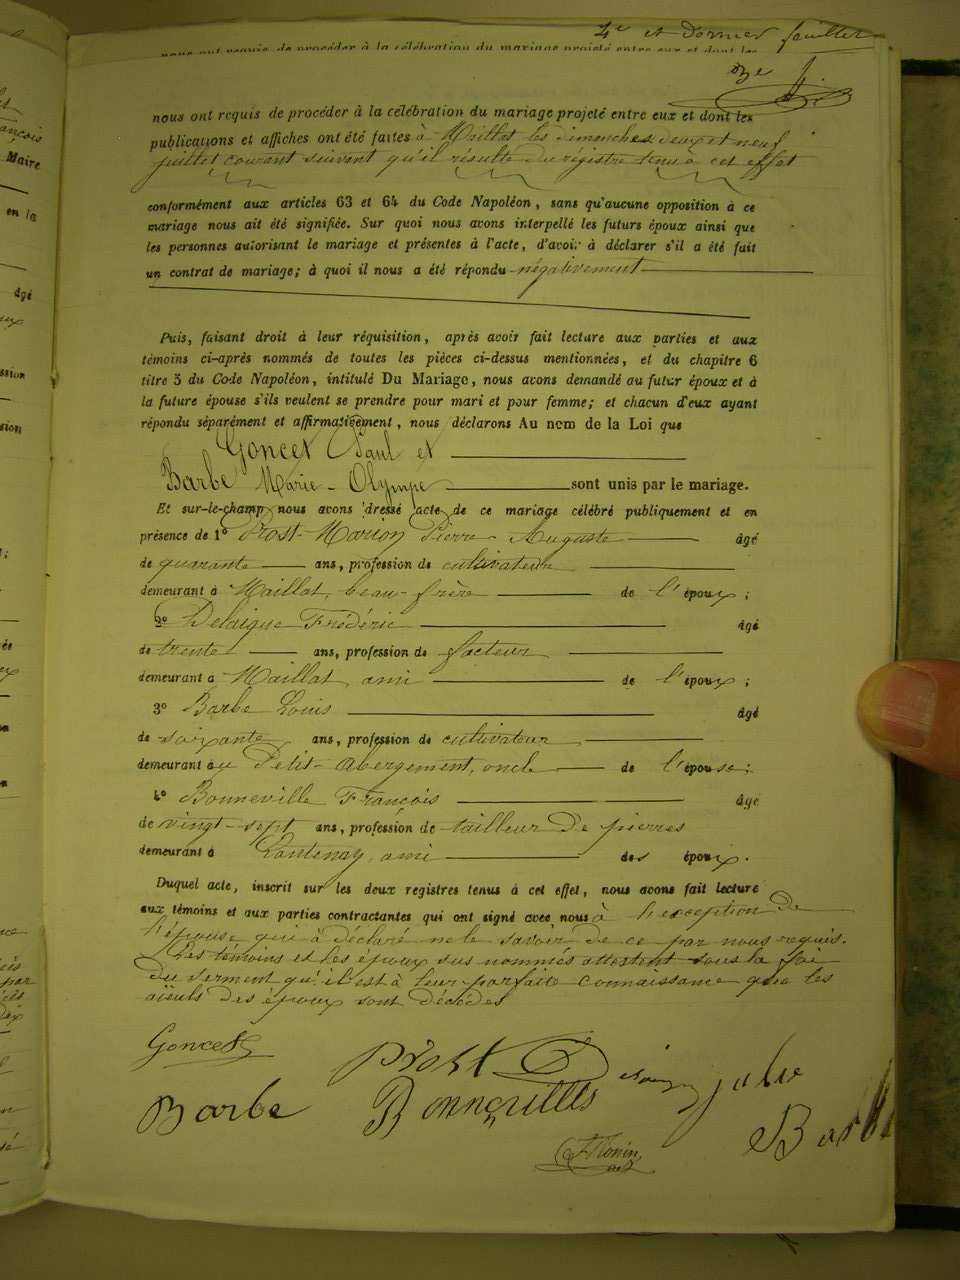 4e et Dernier feuillet
nous ont requis de procéder à la célébration du mariage projeté entre eux et dont les
nous ont requis de procéder à la célébration du mariage projeté entre eux et dont les
publications et affiches ont été faites à Maillat les dimanches deux et neuf
juillet courant suivant qu'il résulte du régistre tenu à cet effet
conformément aux articles 63 et 64 du Code Napoléon, sans qu'aucune opposition à ce
mariage nous ait été signifiée. Sur quoi nous avons interpellé les futurs époux ainsi que
les personnes autorisant le mariage et présentes à l'acte, d'avoir à déclarer s'il a été fait
un contrat de mariage; à quoi il nous a été répondu négativement
Puis, faisant droit à leur réquisition, après avoir fait lecture aux parties et aux
témoins ci-après nommés de toutes les pièces ci-dessus mentionnées, et du chapitre 6
titre 5 du Code Napoléon, intitulé Du Mariage, nous avons demandé au futur époux et à
la future épouse s'ils veulent se prendre pour mari et pour femme; et chacun d'eux ayant
répondu séparément et affirmativement, nous déclarons Au nom de la Loi que
Goncet Paul et
Barbe Marie-Olympe sont unis par le mariage.
Et sur-le-champ nous avons dressé acte de ce mariage célébré publiquement et en
présence de 1o Prost-Marion Pierre Auguste âgé
de quarante ans, profession de cultivateur
demeurant à Maillat, beau-frère de l'époux;
2o Delaigue Frédéric âgé
de trente ans, profession de facteur
demeurant à Maillat, ami de l'époux;
3o Barbe Louis âgé
de soixante ans, profession de cultivateur
demeurant au Petit-Abergement, oncle de l'épouse;
4o Bonneville François âgé
de vingt-sept ans, profession de tailleur de pierres
demeurant à Lantenay, ami des époux.
Duquel acte, inscrit sur les deux registres tenus à cet effet, nous avons fait lecture
aux témoins et aux parties contractantes qui ont signé avec nous à l'exception de
l'épouse qui a déclaré ne le savoir de ce par nous requis.
Les témoins et les époux sus nommés attestent sous la foi
du serment qu'il est à leur parfaite connaissance que les
aïeuls des époux sont décédés
Goncet
Prost
Barbe
Bonneville
Barbe